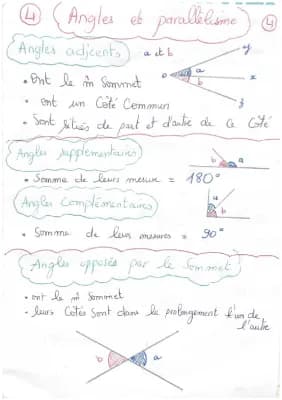 4 Angles et parallélisme 4
Angles adjcents a et b
y
• Ont le m̂ Sommet
o a x
b
• ont un Côté Commun
z
• Sont situés de part et d'autre de ce Côté
Angles supplementaires
b a
• Somme de leurs mesure = 180°
Angles Complémentaires
a
b
• Somme de leurs mesures = 90°
Angles opposés par le Sommet
• ont le m̂ Sommet
- leurs Côtés Sont dans le prolongement l'un de
l'autre
b a